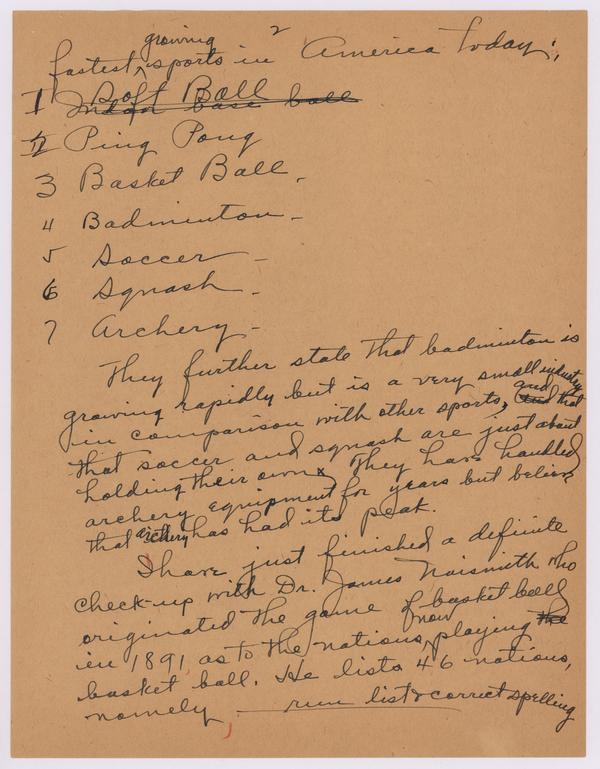 2
fastest growing sports in America today;,
1 Soft Ball
Indoor base ball
2 Ping Pong
3 Basket Ball.
4 Badminton -
5 Soccer -
6 Squash -
7 Archery -
They further state that badminton is
growing rapidly but is a very small industry
in comparison with other sports, and that
that soccer and squash are just about
holding their own. They have handled
archery equipment for years but believe
that archery has had its peak.
I have just finished a definite
check-up with Dr. James Naismith who
originated the game of basket ball
in 1891, as to the nations now playing the
basket ball. He lists 46 nations,
namely - run list & correct spelling